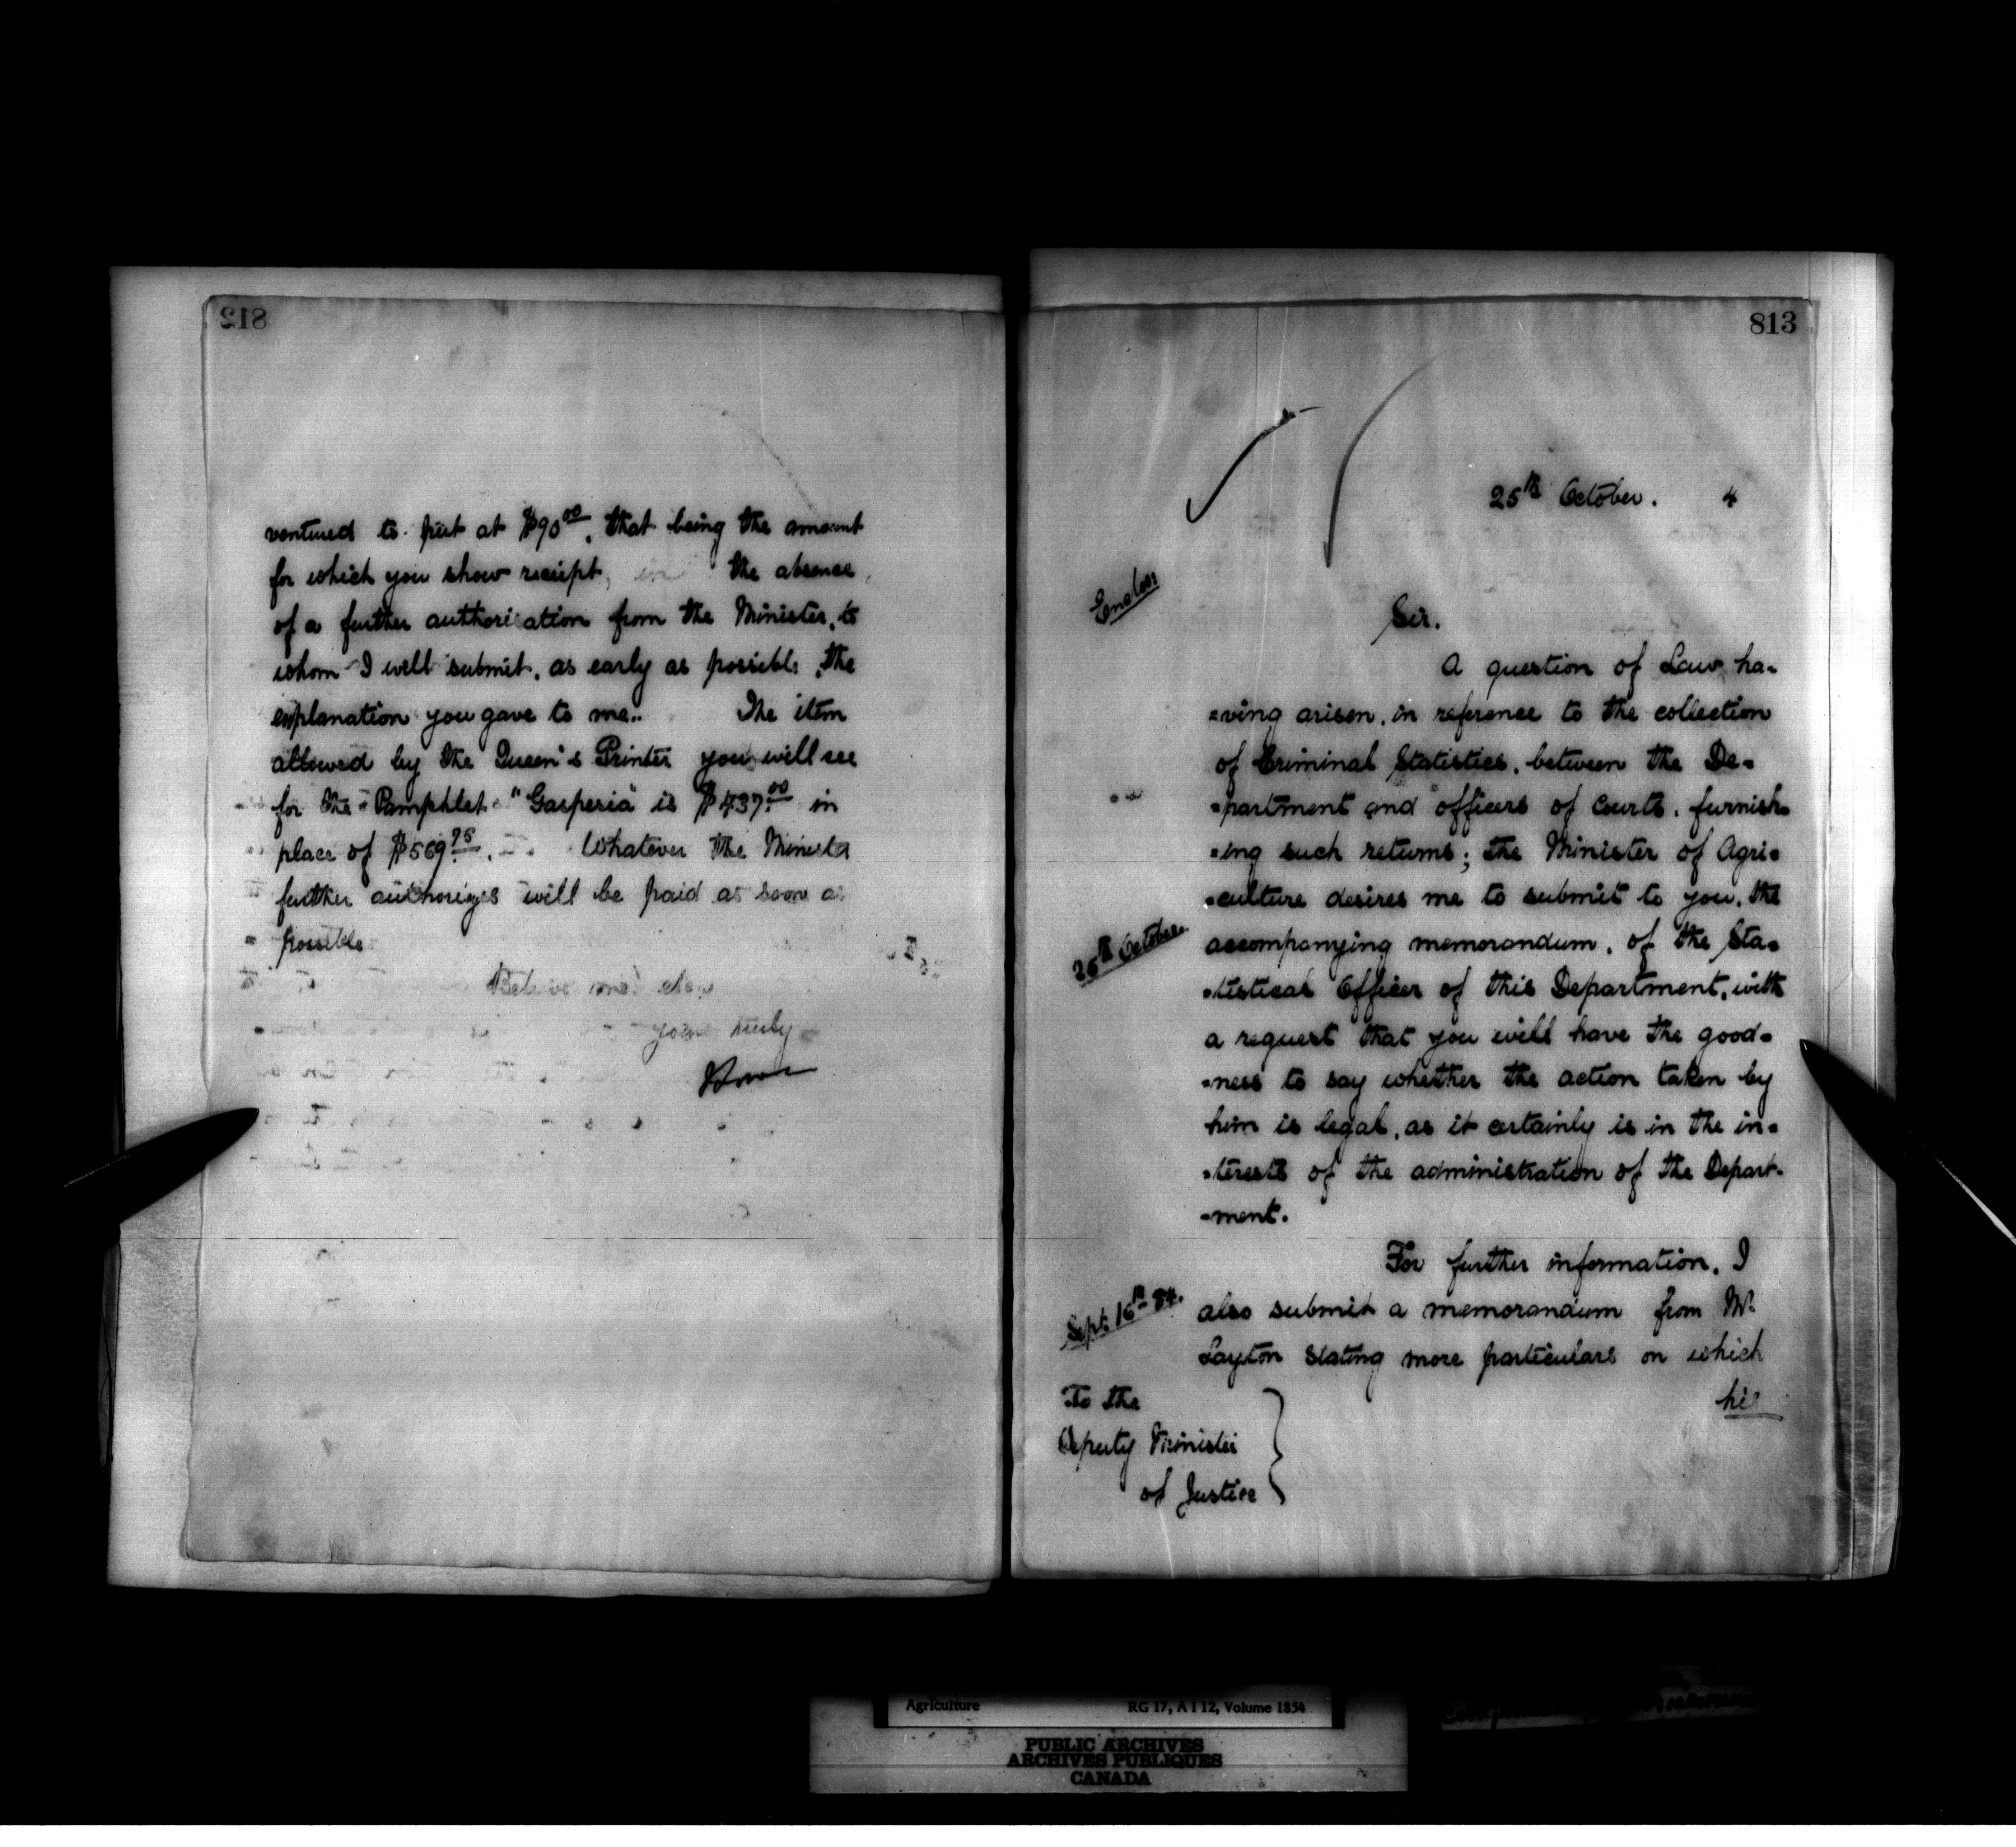 812
ventured to put at $90.00, that being the amount
for which you show receipt, in the absence
of a further authorisation from the Minister, to
whom I will submit, as early as possible, the
explanation you gave to me.. The item
allowed by the Queen's Printer you will see
for the Pamphlet "Gasperia" is $437.00 in
place of $569.75. Whatever the Minister
further authorizes will be paid as soon as
possible
Believe me
yours truly
813
25th October. 4
Enclos:
Sir.
A question of Law ha-
=ving arisen, in reference to the collection
of Criminal Statistics, between the De-
=partment and officers of Courts, furnish-
=ing such returns; the Minister of Agri=
=culture desires me to submit to you, the
25th October.
accompanying memorandum, of the Sta=
=tistical Officer of this Department, with
a request that you will have the good=
=ness to say whether the action taken by
him is legal, as it certainly is in the in=
=terests of the administration of the Depart-
=ment.
For further information, I
Sept: 16th 84.
also submit a memorandum from Mr.
Layton stating more particulars on which
his
To the
Deputy Minister
of Justice
Agriculture RG 17, A I 12, Volume 1854
PUBLIC ARCHIVES
ARCHIVES PUBLIQUES
CANADA